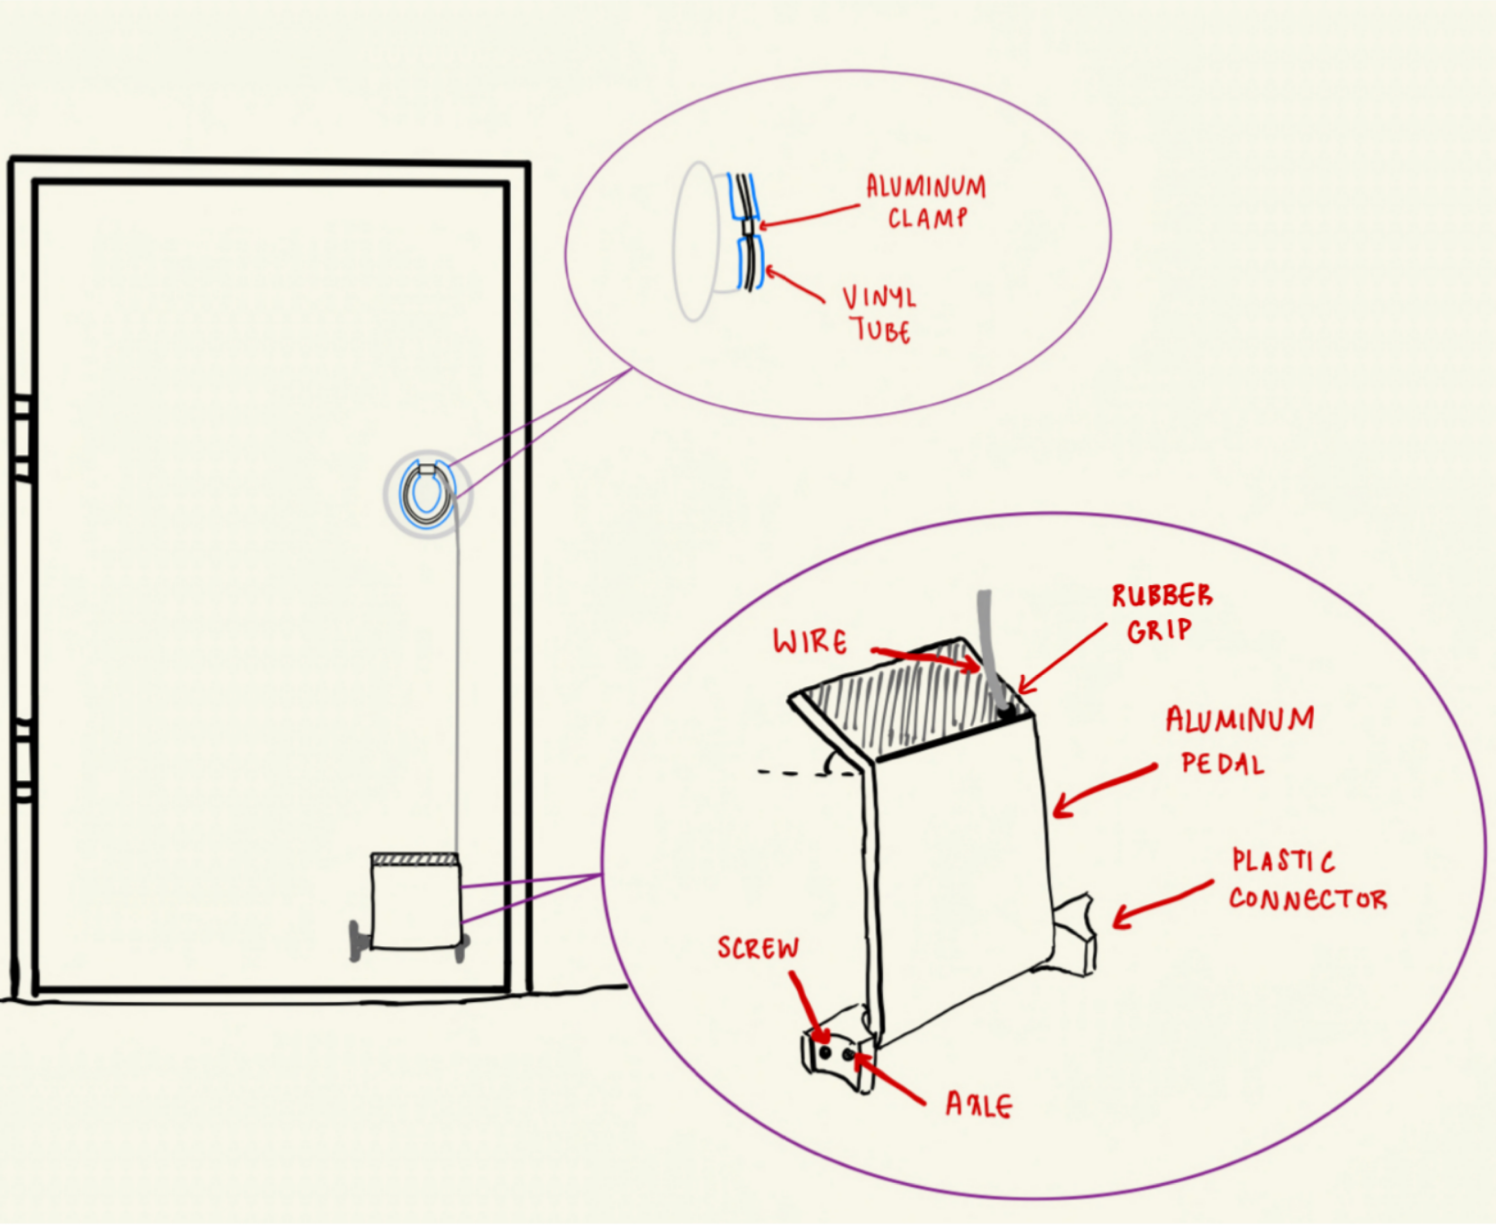 ALUMINUM
CLAMP
VINYL
TUBE
WIRE
RUBBER
GRIP
ALUMINUM
PEDAL
PLASTIC
CONNECTOR
SCREW
AXLE